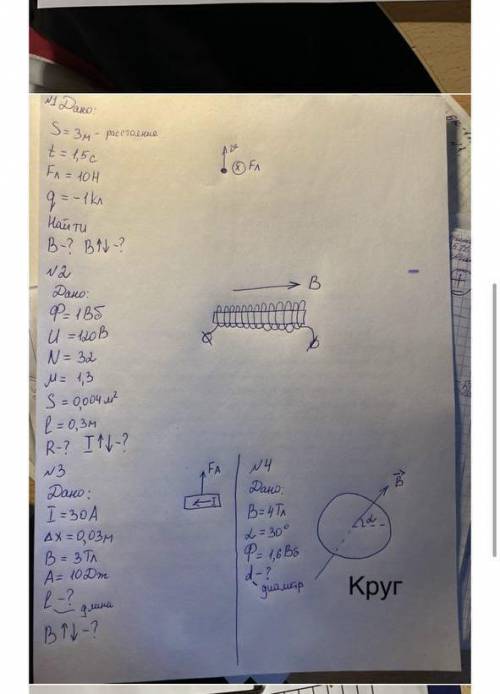 №1 Дано:
S = 3м - расстояние
t = 1,5с
Fл = 10Н
q = -1Кл
Найти
B-? B↑↓-?
v
Fл
№2
Дано:
Ф = 1Вб
U = 120В
N = 32
M = 1,3
S = 0,004м²
l = 0,3м
R-? I↑↓-?
B
№3
Дано:
I = 30А
Δx = 0,03м
B = 3Тл
A = 10Дж
l-?
длина
B↑↓-?
Fл
I
№4
Дано:
B = 4Тл
α = 30°
Ф = 1,6Вб
d-?
диаметр
B
α
Круг